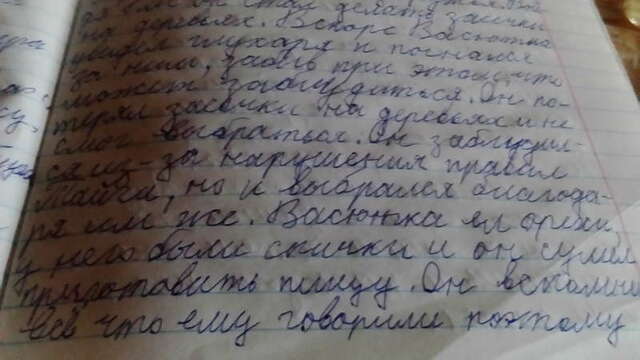 он стал делать засечки
на деревьях. Вскоре Васютка
увидел глухаря и погнался
за ним, забыв при этом что
может заблудиться. Он по-
терял засечки на деревьях и не
смог выбраться. Он заблудил-
ся из-за нарушения правил
Тайги, но и выбрался благода-
ря им же. Васютка ел орехи
у него были спички и он сумел
приготовить пищу. Он вспомнил
всё что ему говорили поэтому